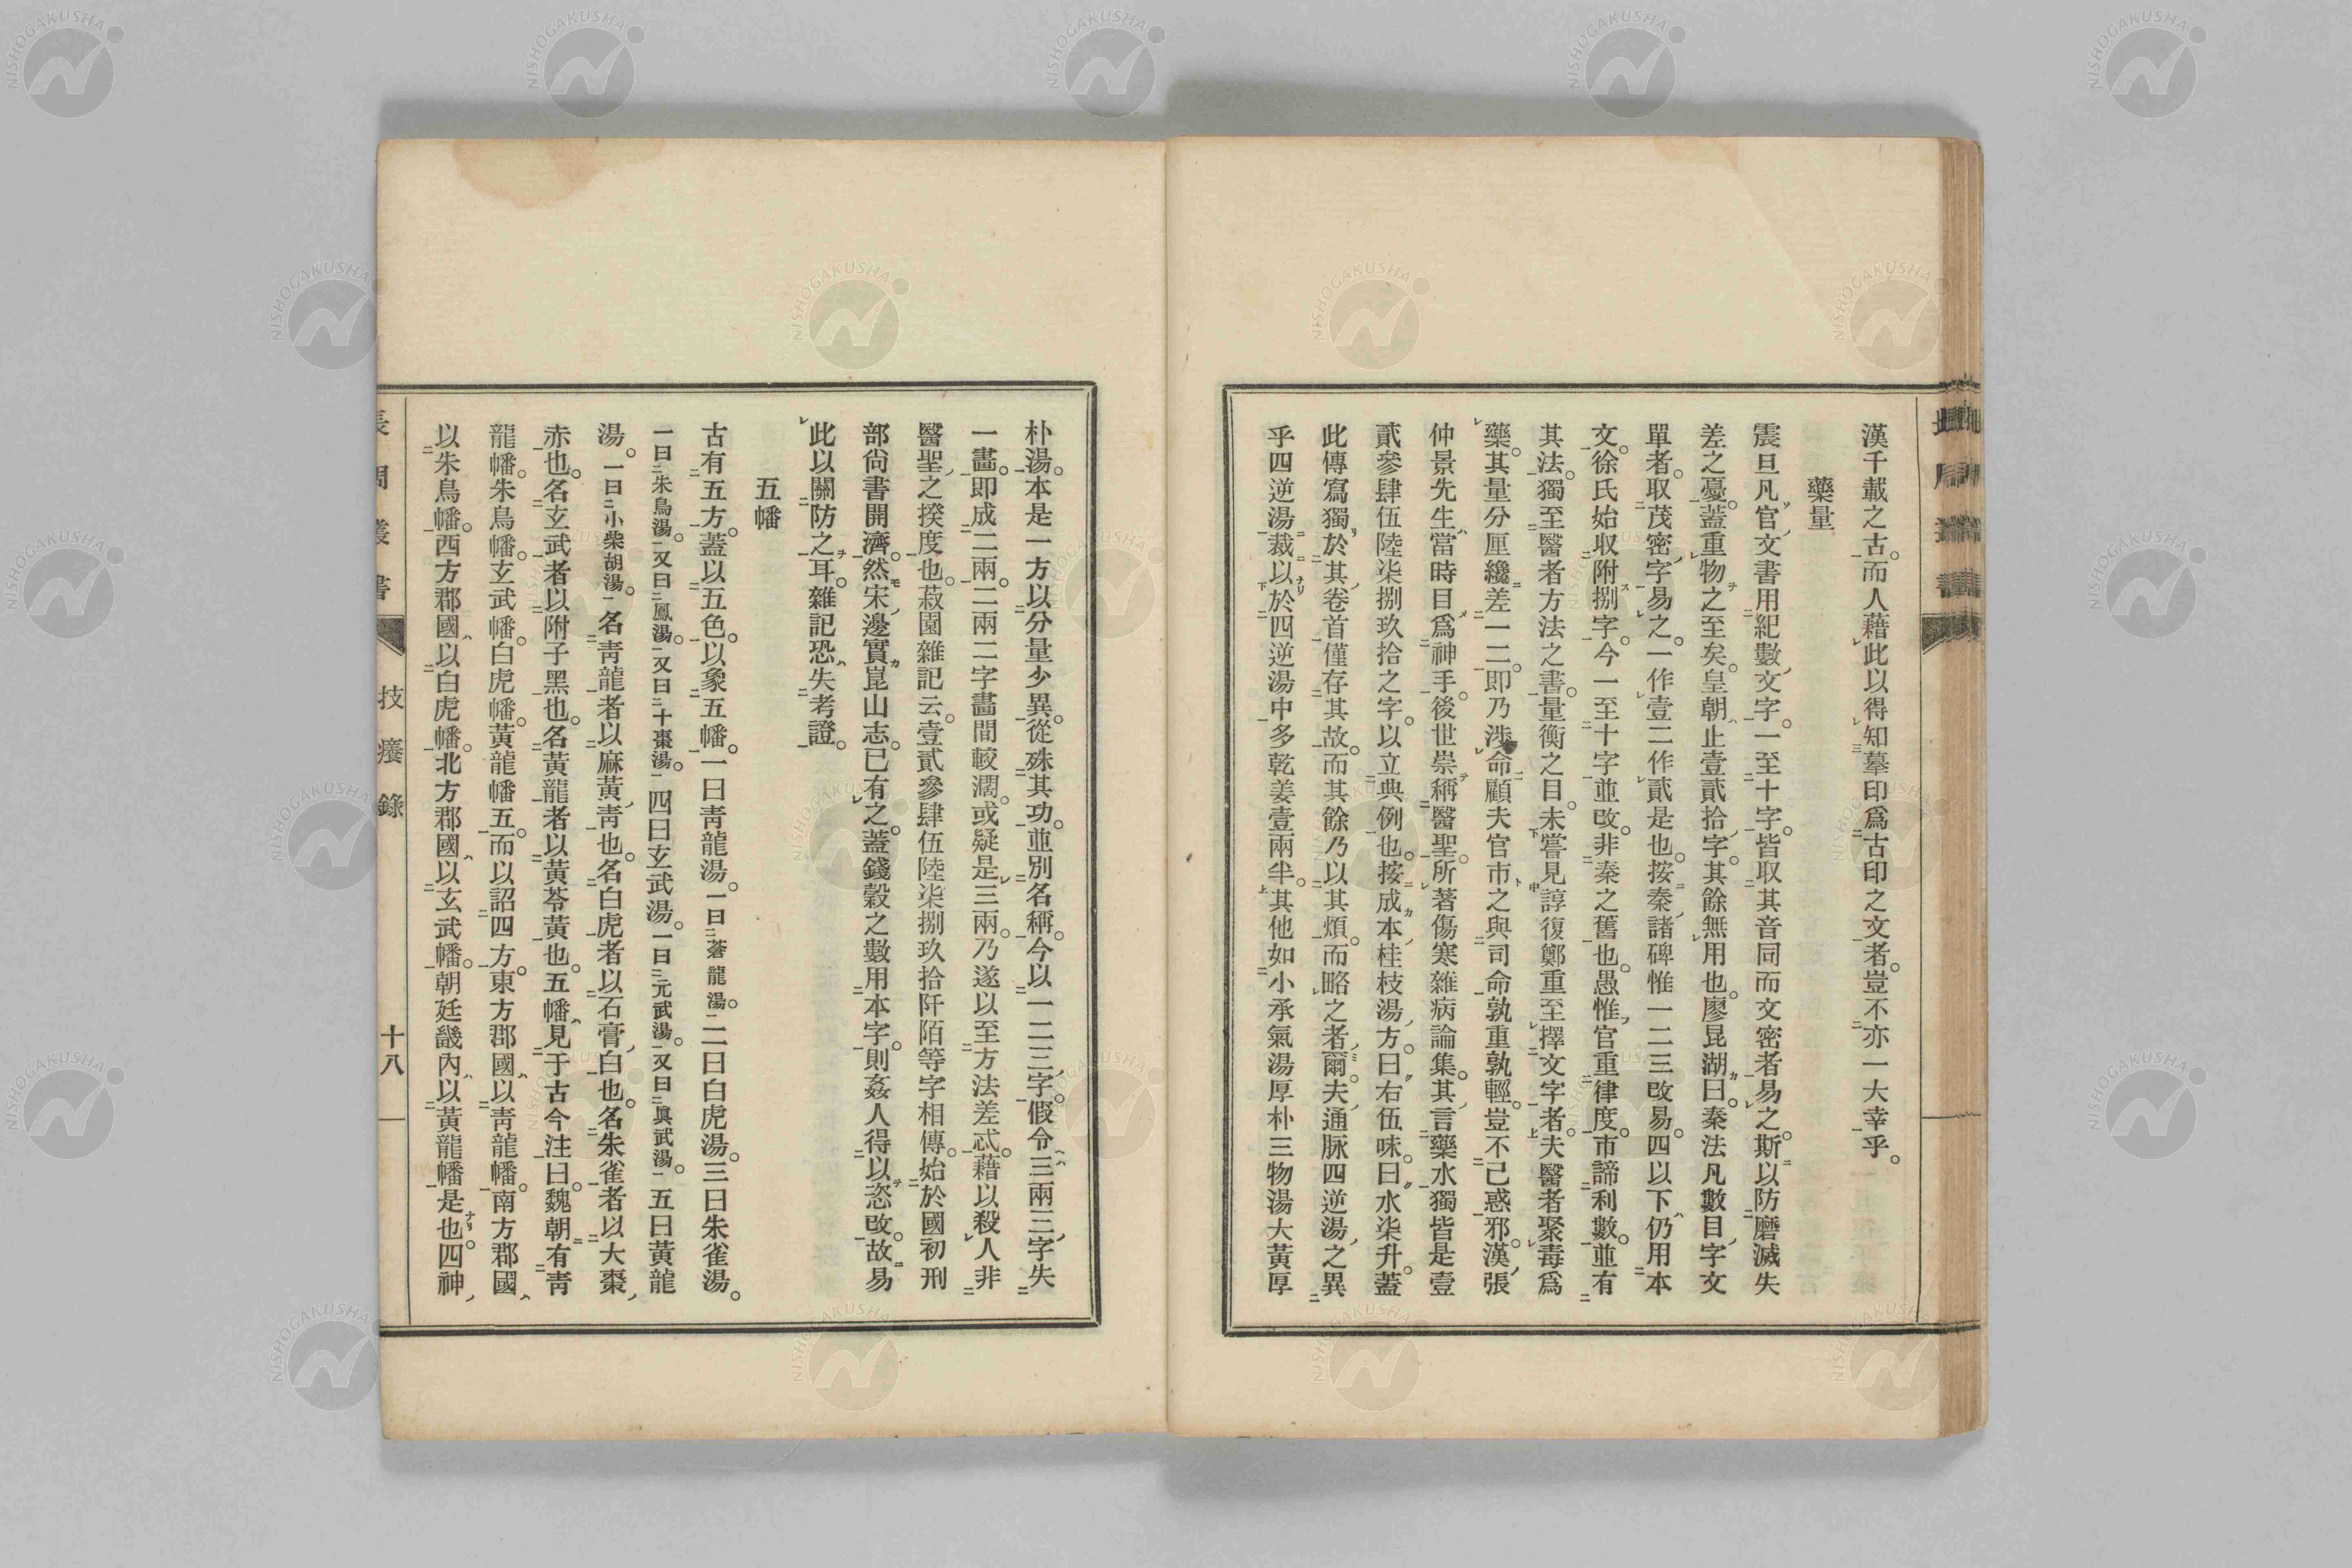 漢千載之古。而人藉此以得知摹印爲古印之文者。豈不亦一大幸乎。
藥量
震旦凡官文書用紀數文字。一至十字。皆取其音同而文密者易之。斯以防磨滅失
差之憂。蓋重物之至矣。皇朝止壹貳拾字。其餘無用也。廖昆湖曰。秦法凡數目字文
單者。取茂密字易之。一作壹二作貳是也。按秦諸碑惟一二三改易。四以下仍用本
文。徐氏始取附捌字。今一至十字並改。非秦之舊也。愚惟官重律度。市諦利數。並有
其法。獨至醫者方法之書。量衡之目。未嘗見諄復鄭重至擇文字者。夫醫者聚毒爲
藥。其量分厘纔差一二。即乃涉命。顧夫官市之與司命孰重孰輕。豈不已惑邪。漢張
仲景先生當時目爲神手。後世崇稱醫聖。所著傷寒雜病論集。其言藥水獨皆是壹
貳參肆伍陸柒捌玖拾之字。以立典例也。按成本桂枝湯方。曰右伍味。曰水柒升。蓋
此傳寫獨於其卷首僅存其故。而其餘乃以其煩。而略之者爾。夫通脈四逆湯之異
乎四逆湯裁以於四逆湯中多乾姜壹兩半。其他如小承氣湯厚朴三物湯大黃厚
朴湯。本是一方以分量少異。從殊其功。並別名稱。今以一二三字。假令三兩三字失
一畫。即成二兩。二兩二字畫間較濶。或疑是三兩。乃遂以至方法差忒。藉以殺人非
醫聖之揆度也。菽園雜記云。壹貳參肆伍陸柒捌玖拾阡陌等字相傳。始於國初刑
部尙書開濟。然宋邊實崑山志。已有之。蓋錢穀之數用本字。則姦人得以恣改。故易
此以關防之耳。雜記恐失考證。
五幡
古有五方。蓋以五色。以象五幡。一曰靑龍湯。一曰蒼龍湯。二曰白虎湯。三曰朱雀湯。
一曰朱鳥湯。又曰鳳湯。又曰十棗湯。四曰玄武湯。一曰元武湯。又曰眞武湯。五曰黃龍
湯。一曰小柴胡湯。名靑龍者以麻黃靑也。名白虎者以石膏白也。名朱雀者以大棗
赤也。名玄武者以附子黑也。名黃龍者以黃芩黃也。五幡見于古今注曰。魏朝有靑
龍幡。朱鳥幡。玄武幡。白虎幡。黃龍幡五。而以詔四方。東方郡國以靑龍幡。南方郡國
以朱鳥幡。西方郡國以白虎幡。北方郡國以玄武幡。朝廷畿內以黃龍幡是也。四神
技癢錄
十八